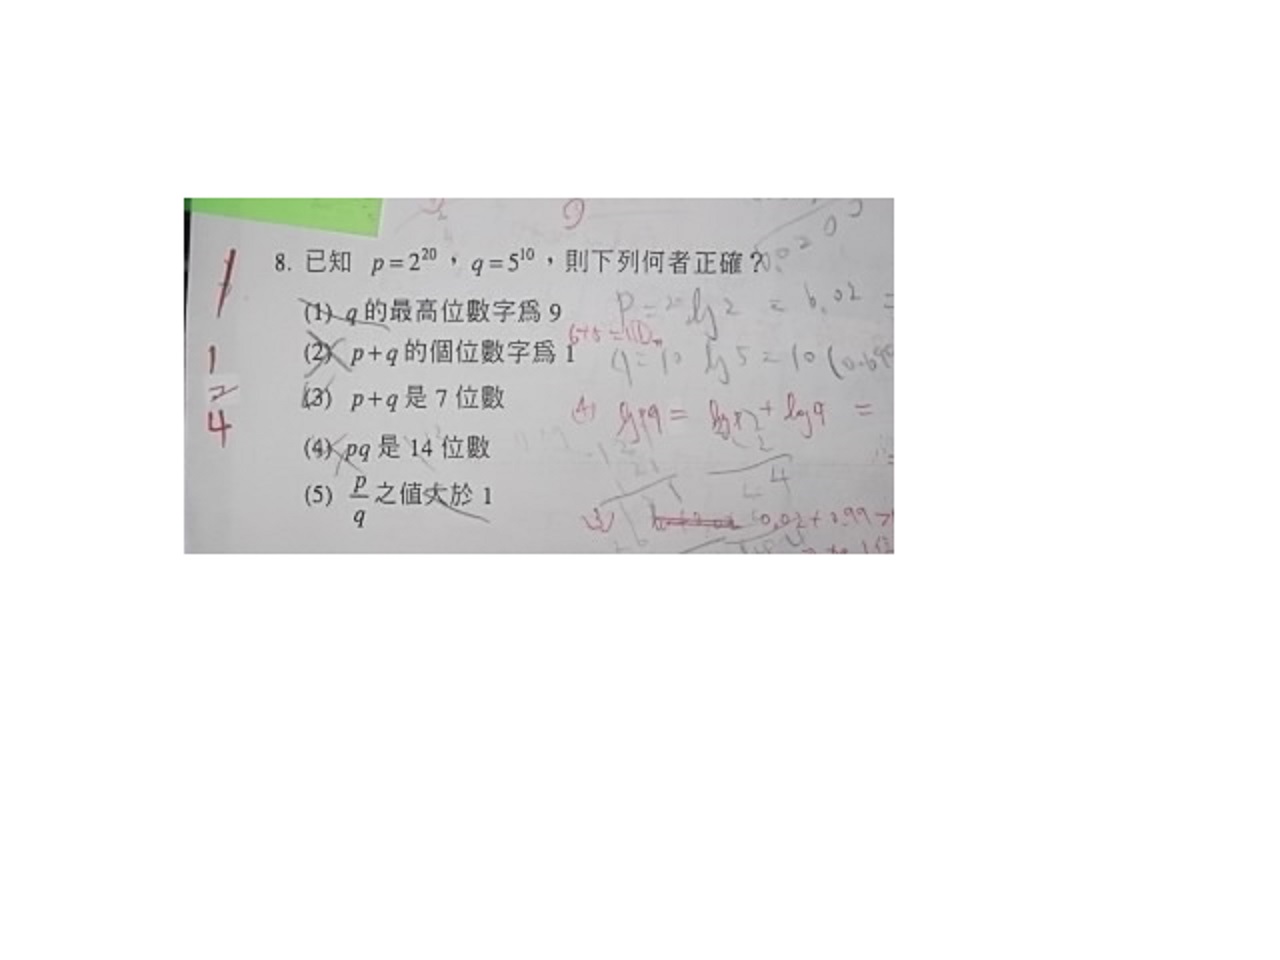 9
8. 已知 p=2²⁰，q=5¹⁰，則下列何者正確？
(1) q的最高位數字爲 9
(2) p+q的個位數字爲 1
(3) p+q是 7 位數
(4) pq是 14 位數
(5) p/q之值大於 1
1
1
2
4
P = 20 log 2 = 6.02 =
6+5=11
q = 10 log 5 = 10 (0.699
(4) log pq = log p + log q =
(3) 0.02 + 0.99 >